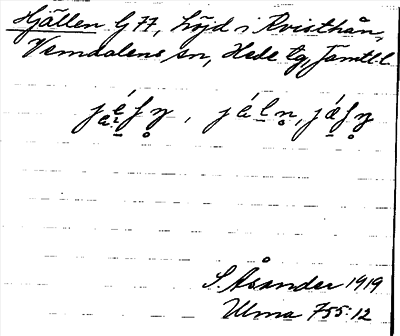 Hjällen G 77, höjd i Kvisthån,
Vemdalens sn, Hede tg, Jämtl. l
S. Åsander 1919
Ulma 755:12